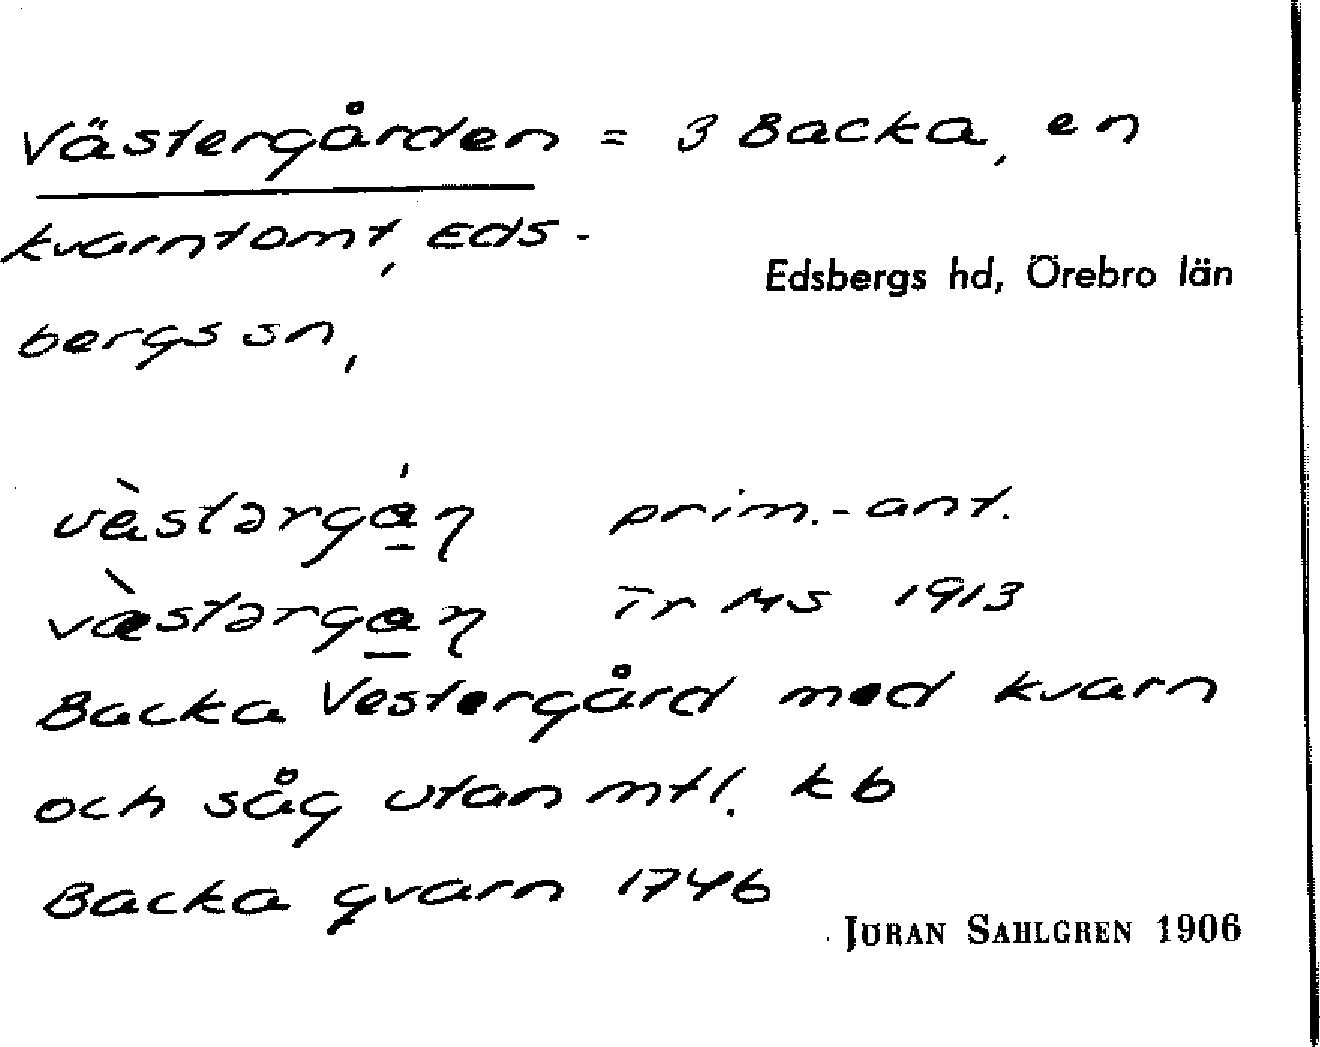 Västergården = 3 Backa, en
kvarntomt, Eds-
Edsbergs hd, Örebro län
bergs sn,
vàstərgá̱ꞃ prim.-ant.
væ̀stərga̱ꞃ Tr MS 1913
Backa Vestergård med kvarn
och såg utan mtl. kb
Backa qvarn 1746
JÖRAN SAHLGREN 1906